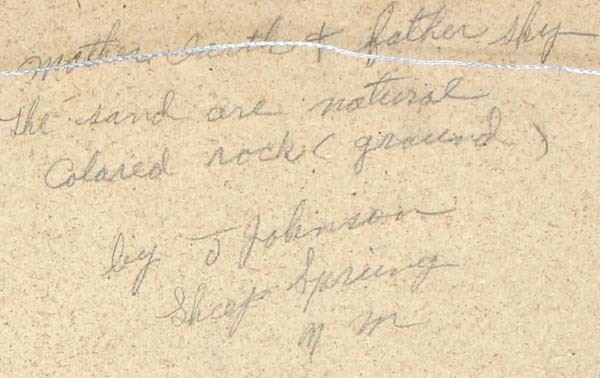 Mother Earth & father sky
The sand are natural
Colared rock ( ground )
by J Johnson
Sheep Spring
N M